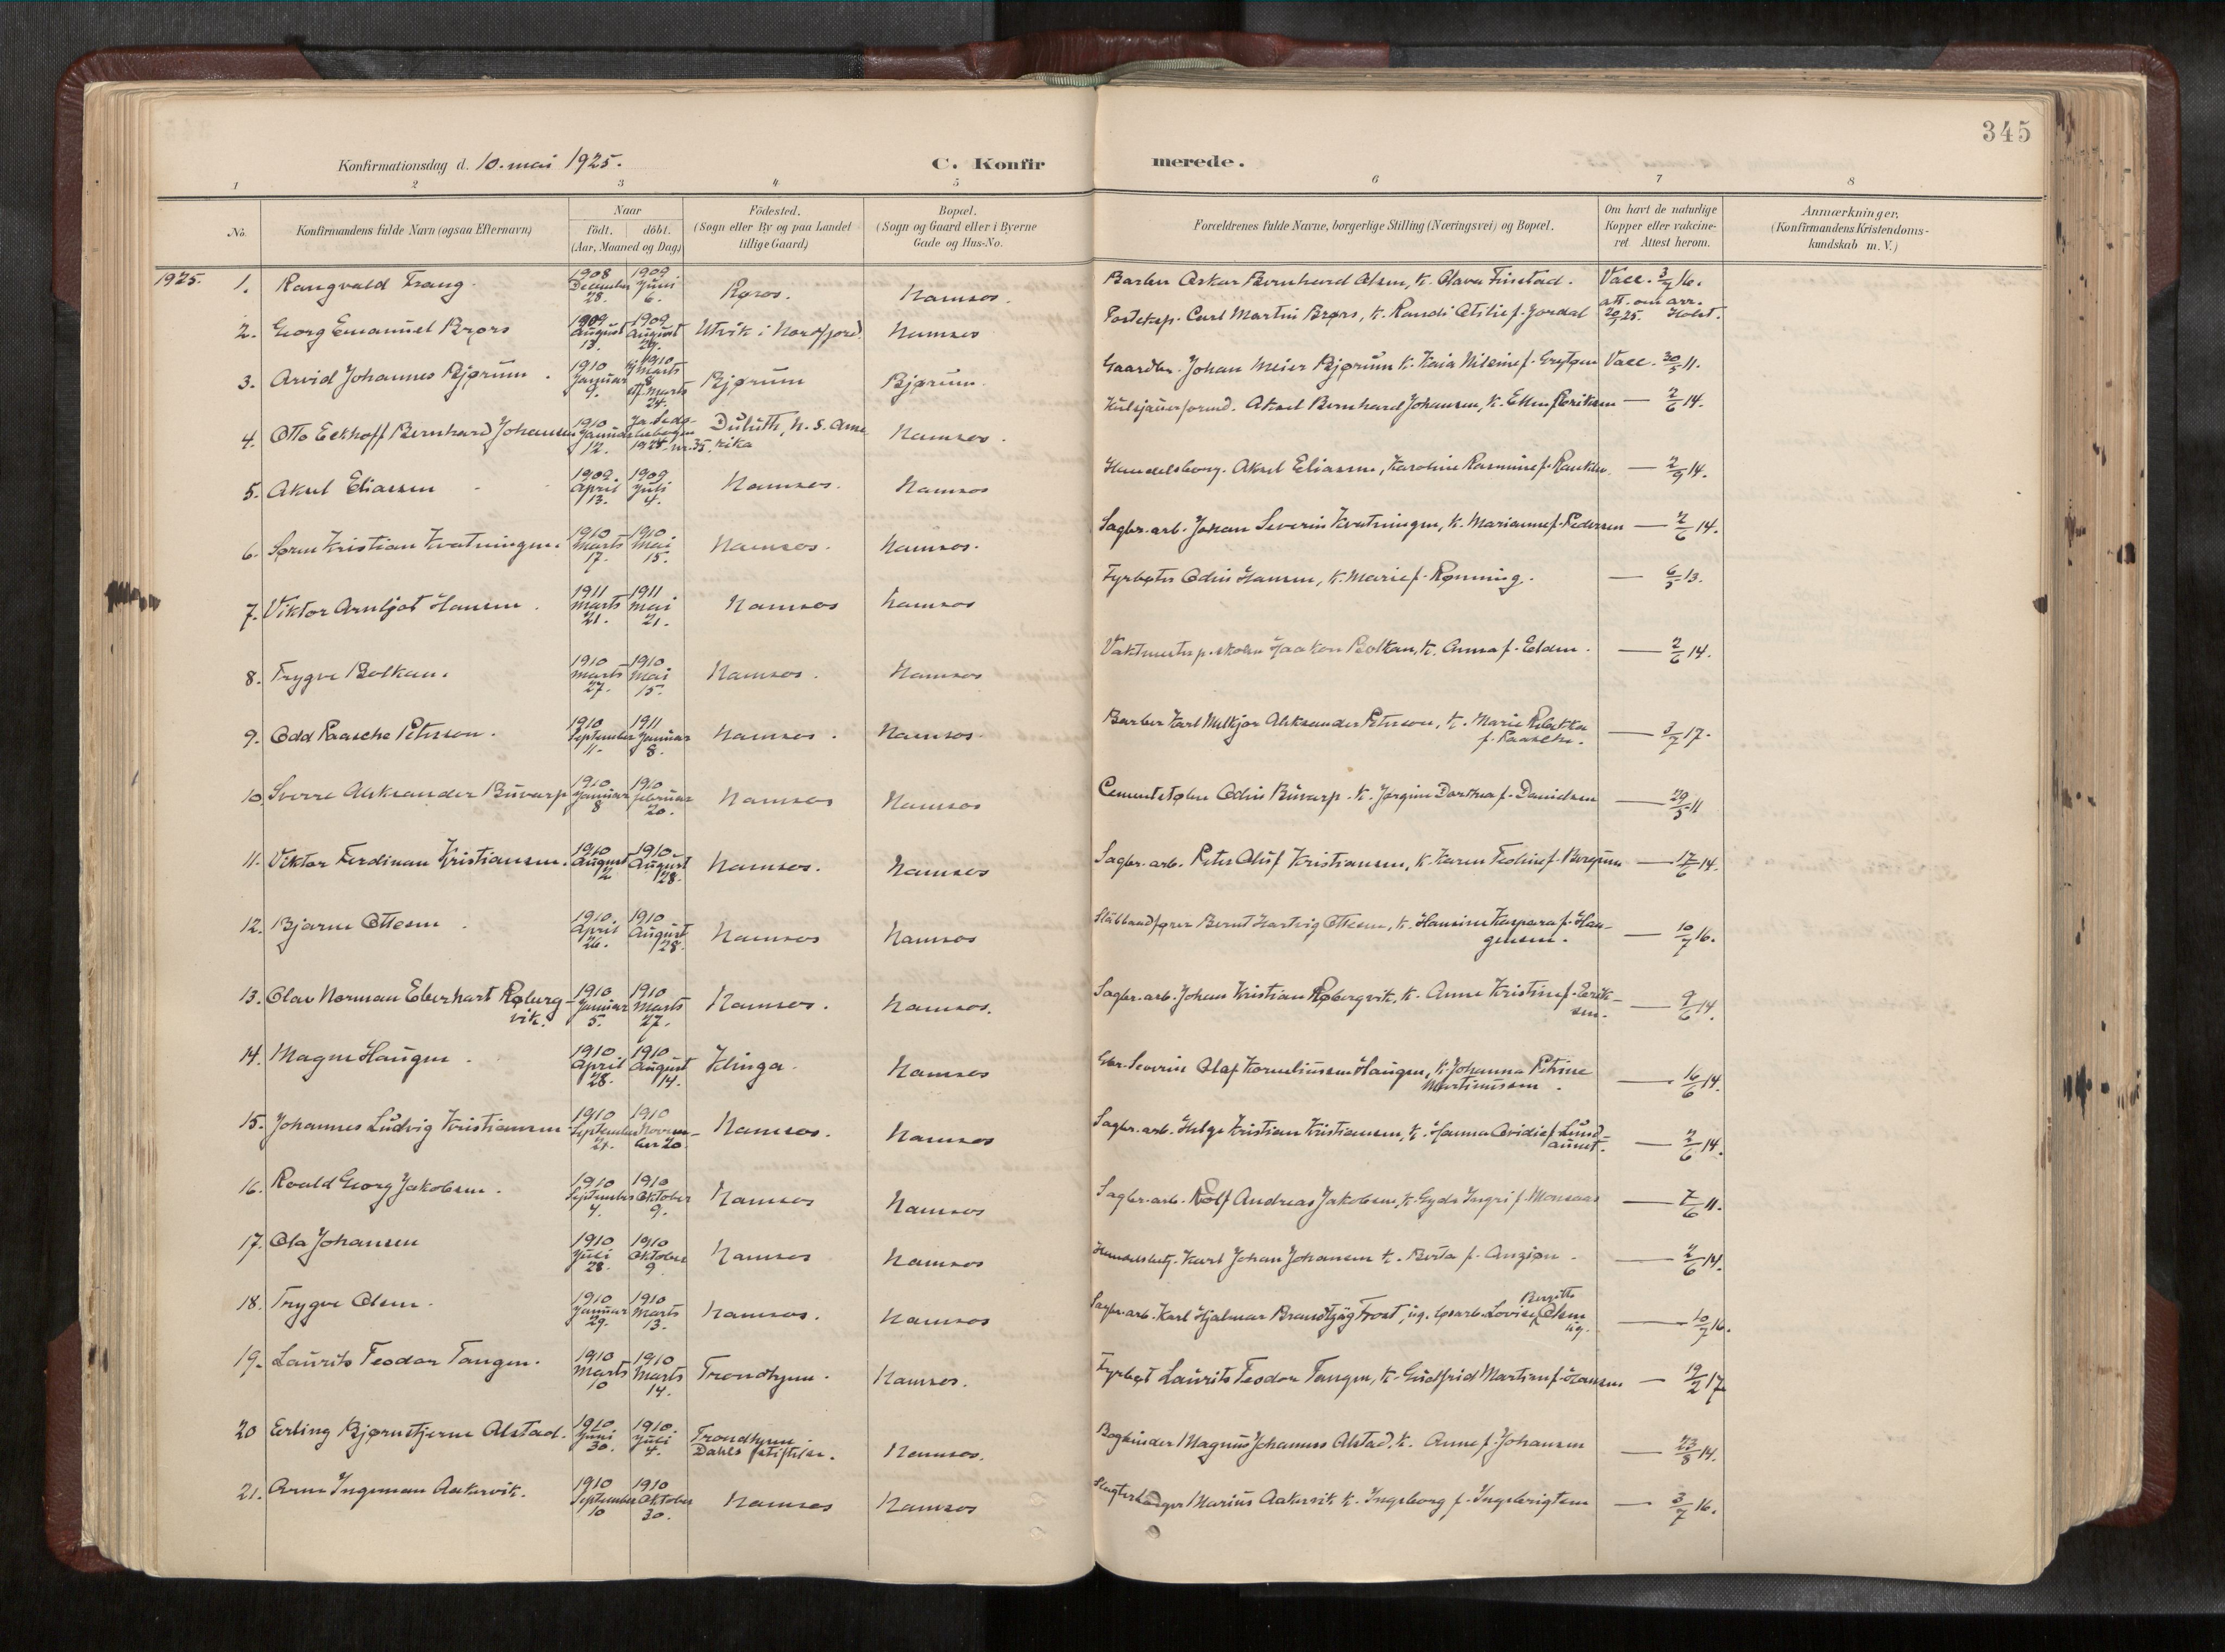 345
Konfirmationsdag d. 10. mai 1925.
C. Konfirmerede.
1 2 3 4 5 6 7 8
No.
Konfirmandens fulde Navn (ogsaa Efternavn)
Naar
født. døbt.
(Aar, Maaned og Dag)
Födested.
(Sogn eller By og paa Landet
tillige Gaard)
Bopæl.
(Sogn og Gaard eller i Byerne
Gade og Hus-No.
Forældrenes fulde Navne, borgerlige Stilling (Næringsvei) og Bopæl.
Om havt de naturlige
Kopper eller vakcine-
ret Attest herom.
Anmærkninger.
(Konfirmandens Kristendoms-
kundskab m. V.)
1925. 1. Rangvald Trang. 1908 December 28. 1909 Juni 6. Røros. Namsos. Barber Oskar Bernhard Olsen, k. Olava Finstad. Vacc. 3/7 16.
2. Georg Emanuel Brørs 1909 August 13. 1909 August 29. Utvik i Nordfjord. Namsos Posteksp. Carl Martin Brørs, k. Randi Otilie f. Jordal att. om arr. 20/25. Holst.
3. Arvid Johannes Bjørum. 1910 Januar 9. 1910 Marts 8 Marts 24. Bjørum Bjørum. Gaardbr. Johan Meier Bjørum k. Kaia Nilsine f. Vacc. 30/5 11.
4. Otto Eckhoff Bernhard Johansen 1910 Januar 12. 1925. nr. 35. Duluth, N. S. Amerika Namsos. Aksel Bernhard Johansen, k. Ellen f. Eriksen — 2/6 14.
5. Aksel Eliassen 1909. April 13. 1909 Juli 4. Namsos. Namsos Handelsborg. Aksel Eliassen, Karoline Rasmine f. — 2/9 14.
6. Søren Kristian Kvatningen. 1910 Marts 17. 1910 Mai 15. Namsos. Namsos. Sagbr. arb. Johan Severin Kvatningen, k. Marianne f. Pedersen — 2/6 14.
7. Viktor Arnljot Hansen. 1911 Marts 21. 1911 Mai 21. Namsos Namsos Fyrbøter Odin Hansen, k. Marie f. Rønning. — 6/5 13.
8. Trygve Bolkan. 1910 Marts 27. 1910 Mai 15. Namsos. Namsos Vaktmester p. skolen Haakon Bolkan, k. Anna f. Elden. — 2/6 14.
9. Odd Paasche Peterson. 1910 September 11. 1911 Januar 8. Namsos. Namsos. Barber Karl Melkjor Aleksander Peterson, k. Marie Rebekka f. Paasche. — 3/7 17.
10. Sverre Aleksander Buvarp 1910 Januar 8 1910 Februar 20. Namsos Namsos Cementstøber Odin Buvarp. k. Jørgine Dorthea f. Danielsen — 29/5 11
11. Viktor Ferdinan Kristiansen. 1910 August 2 1910. August 28. Namsos. Namsos Sagbr. arb. Peter Oluf Kristiansen, k. Karen Teoline f. Bergum — 17/6 14.
12. Bjarne Ottesen. 1910. April 26. 1910 August 28. Namsos Namsos Bernt Hartvig Ottesen, k. Hansine Kaspara f. Haugensen. — 10/7 16.
13. Olav Norman Eberhart Røbergvik. 1910 Januar 5. 1910 Marts 27. Namsos. Namsos. Sagbr. arb. Johans Kristian Røbergvik, k. Anne Kristine f. Eriksen. — 9/6 14.
14. Magne Haugen. 1910 April 28. 1910 August 14. Klinga. Namsos Gbr. Severin Olaf Korneliussen Haugen, k. Johanna Petrine Martinussen. — 16/6 14.
15. Johannes Ludvig Kristiansen 1910 September 21. 1910 November 20. Namsos. Namsos Sagbr. arb. Helge Kristian Kristiansen, k. Hanna Ovidie f. Lundaunet. — 2/6 14.
16. Roald Georg Jakobsen. 1910 September 4. 1910 Oktober 9. Namsos Namsos Sagbr. arb. Rolf Andreas Jakobsen, k. Gyda Ingri f. Monsaas — 7/6 11.
17. Ola Johansen 1910 Juli 28. 1910 Oktober 9 Namsos Namsos Handelsbetj. Karl Johan Johansen k. Berta f. Anzion. — 2/6 14.
18. Trygve Olsen. 1910 Januar 29. 1910 Marts 13. Namsos. Namsos Sagbr. arb. Karl Hjalmar Brandtzæg Trost, ug. Lovise Bergitte Olsen ug. — 10/7 16.
19. Laurits Teodor Tangen. 1910 Marts 10 1910 Marts 14. Trondhjem. Namsos. Fyrbøt Laurits Teodor Tangen, k. Gudfrid Martine f. Hansen — 19/2 17
20 Erling Bjørnstjerne Alstad. 1910 Juni 30. 1910. Juli 4. Trondhjem. Dahls stiftelse. Namsos. Bogbinder Magnus Johannes Alstad, k. Anne f. Johansen — 23/8 14.
21. Arne Ingeman Aakervik. 1910 September 10 1910 Oktober 30. Namsos Namsos Marius Aakervik k. Ingeborg f. Ingebrigtsen — 3/7 16.